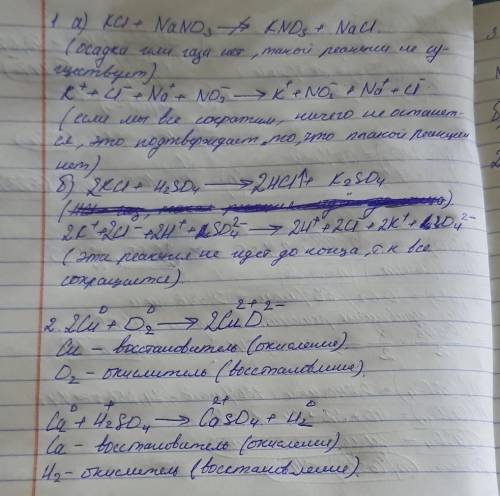 1. а) KCl + NaNO₃ ↛ KNO₃ + NaCl.
(осадка или газа нет, такой реакции не су-
ществует)
K⁺ + Cl⁻ + Na⁺ + NO₃⁻ → K⁺ + NO₃⁻ + Na⁺ + Cl⁻
(если мы все сократим, ничего не останет-
ся, это подтверждает то, что такой реакции
нет)
б) 2KCl + H₂SO₄ → 2HCl↑ + K₂SO₄
2K⁺ + 2Cl⁻ + 2H⁺ + SO₄²⁻ → 2H⁺ + 2Cl⁻ + 2K⁺ + SO₄²⁻
(эта реакция не идет до конца, т.к все
сокращается).
2. 2Cu⁰ + O₂⁰ → 2Cu²⁺O²⁻
Cu – восстановитель (окисление)
O₂ – окислитель (восстановление).
Ca⁰ + H₂⁺SO₄ → Ca²⁺SO₄ + H₂⁰
Ca – восстановитель (окисление)
H₂ – окислитель (восстановление).